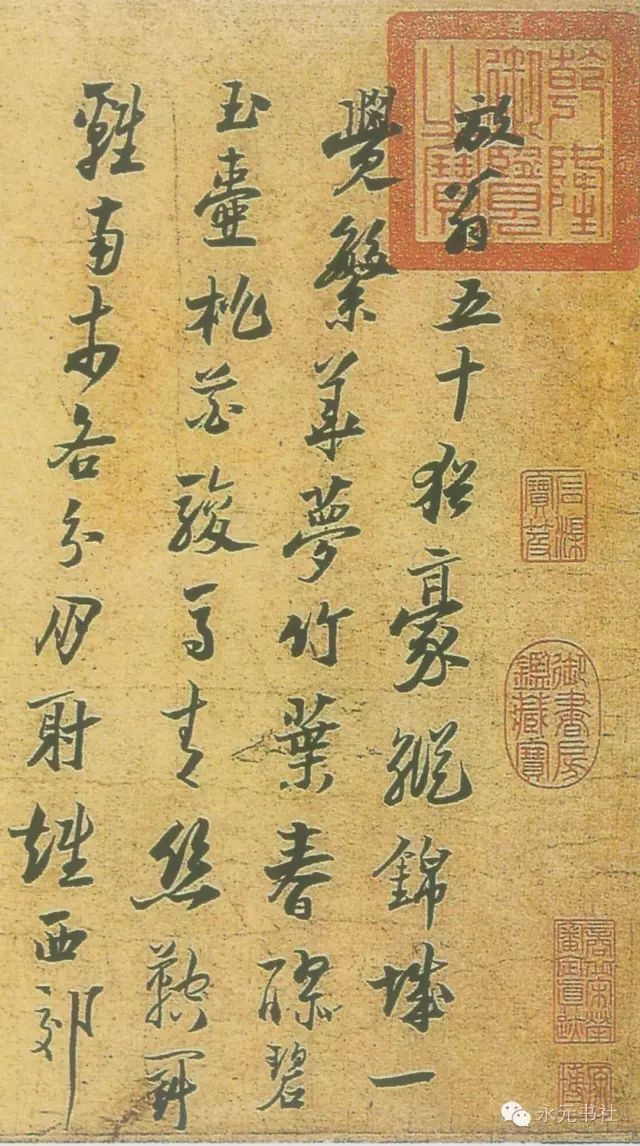 放翁五十猶豪縱錦城一
覺繁華夢竹葉春醪碧
玉壺桃花駿馬青絲鞚鬥
雞南市各分朋射雉西郊
乾隆御覽之寶
石渠寶笈
御書房鑑藏寶
永元书社